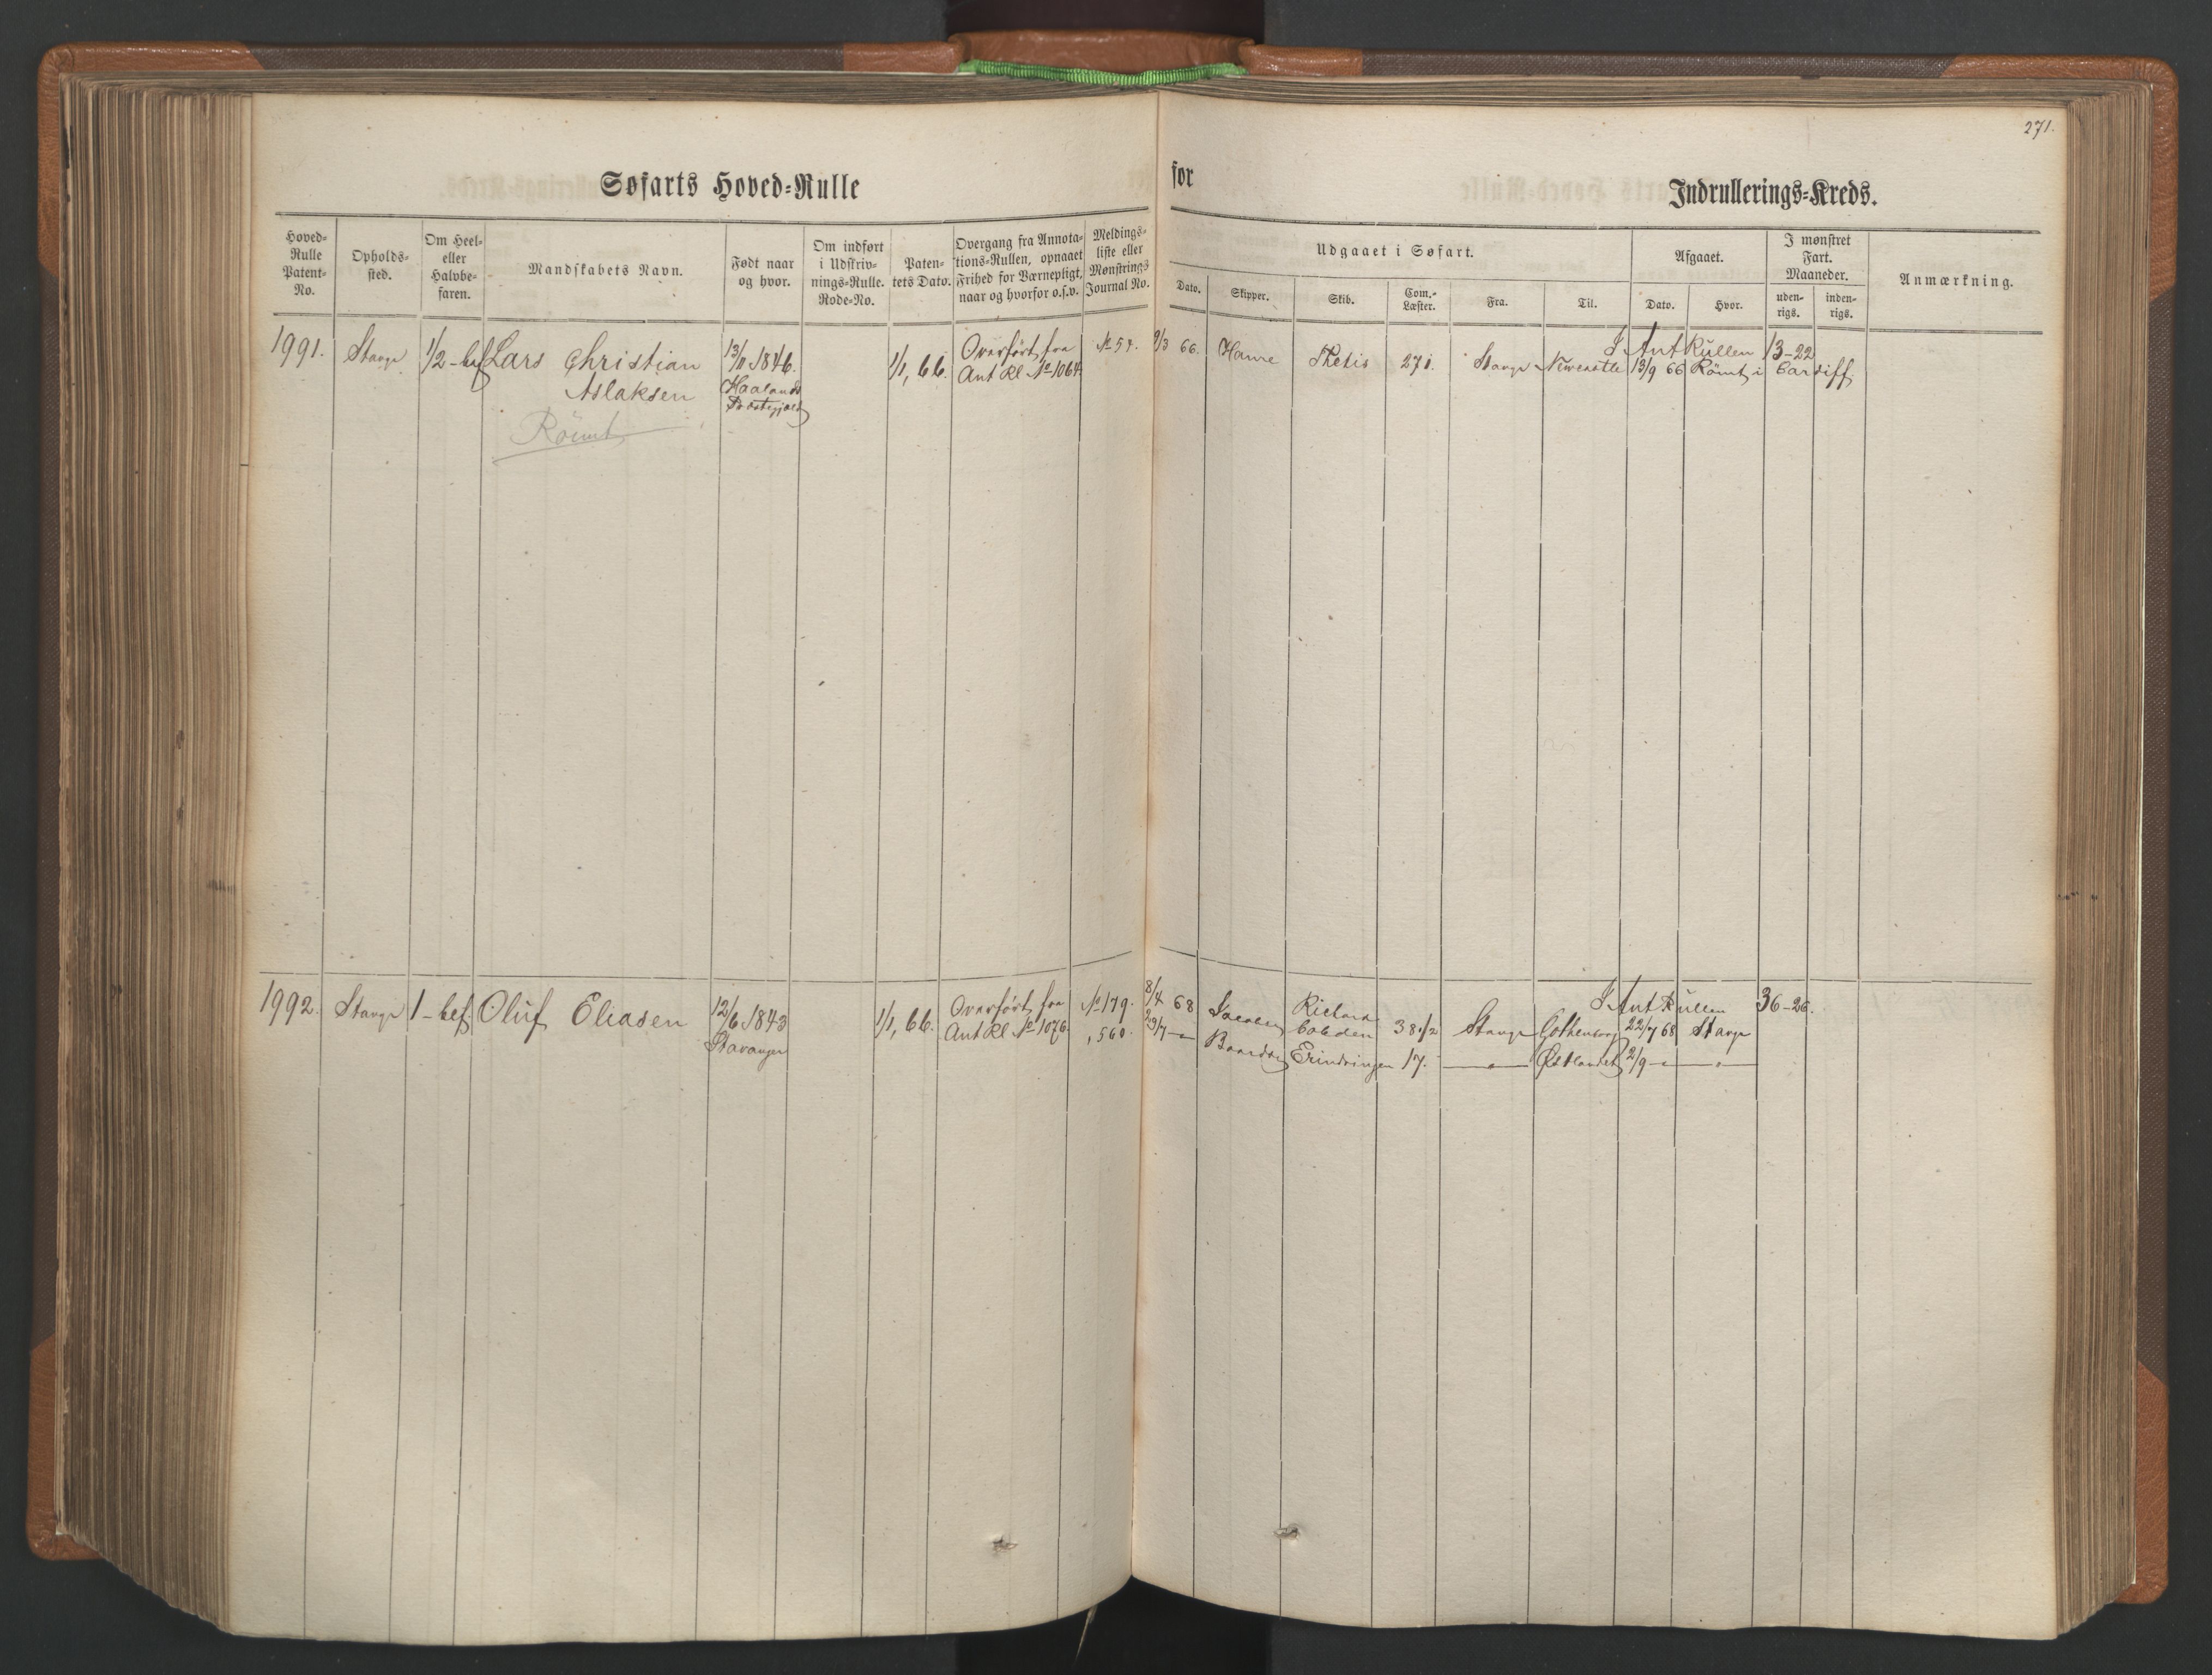 271.
Søfarts Hoved=Rulle
for
Indrullerings=Kreds.
Hoved=
Rulle
Patent=
No.
Opholds=
sted.
Om Heel=
eller
Halvbe=
faren.
Mandskabets Navn.
Født naar
og hvor.
Om indført
i Udskriv=
nings=Rulle.
Rode=No.
Paten=
tets Dato.
Overgang fra Annota=
tions=Rullen, opnaaet
Frihed for Værnepligt,
naar og hvorfor o.s.v.
Meldings=
liste eller
Mønstrings
Journal No.
Udgaaet i Søfart.
Dato.
Skipper.
Skib.
Com.=
Læster.
Fra.
Til.
Afgaaet.
Dato.
Hvor.
I mønstret
Fart.
Maaneder.
uden=
rigs.
inden=
rigs.
Anmærkning.
1991. Stavgr 1/2-bef Lars Christian 13/11 1846. 1/1, 66. Overført fra No 54. 9/3 66. Thetis 271. Stavgr Newcastle I Ant Rullen 13-22
Aslaksen Haalands Ant Rl No 1064 13/9 66 Römt i Cardiff
Præstegjæld
Römt
1992. Stavgr 1-bef. Oluf Eliasen 12/6 1843 1/1, 66. Overført fra No 179. 8/4 68 Jacobsen Richard I Ant Rullen 36-26.
Stavanger Ant Rl No 1076. , 560. 29/7 -"- Cobden 38 1/2 Stavgr Gothenborg 22/7 68 Stavgr
Erindringen 17. -"- Østlandet 2/9 -"- -"-